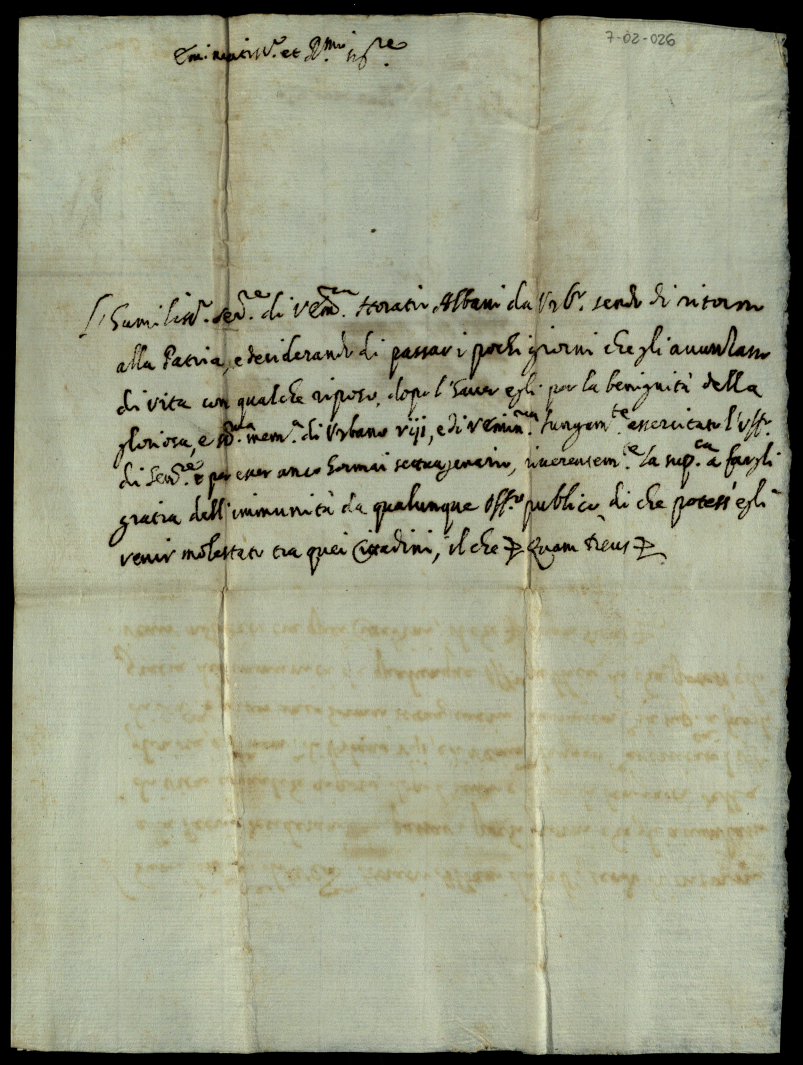 7-02-026
Eminentiss.º et R.mo Sig.re
L'humiliss.º Ser.re di V. Em.za Horatio Albani da Urb.º sendo di ritorno
alla Patria, e desiderando di passar i pochi giorni che gli avanzano
di vita con qualche riposo, dopo l'haver egli per la benignità della
gloriosa, e s.ta mem.a di Urbano viij, e di V. Emin.za lungam.te essercitato l'Uff.º
di Sen.re e per esser anco hormai settuagenario, riverentem.te la sup.ca à fargli
gratia dell'immunità da qualunque Off.º publico, di che potess'egli
venir molestato tra quei Cittadini, il che Quam Deus